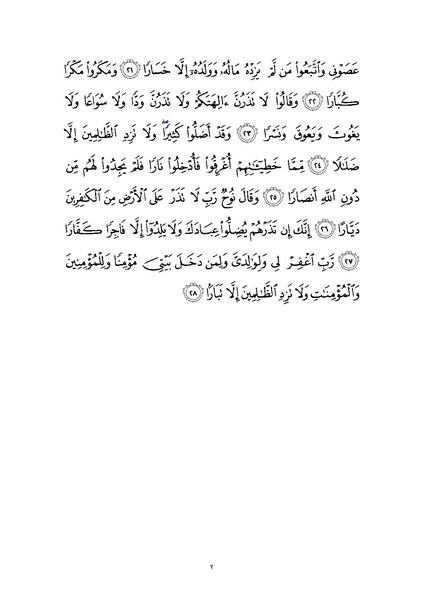 عَصَوۡنِي وَٱتَّبَعُواْ مَن لَّمۡ يَزِدۡهُ مَالُهُۥ وَوَلَدُهُۥٓ إِلَّا خَسَارٗا ٢١ وَمَكَرُواْ مَكۡرٗا
كُبَّارٗا ٢٢ وَقَالُواْ لَا تَذَرُنَّ ءَالِهَتَكُمۡ وَلَا تَذَرُنَّ وَدّٗا وَلَا سُوَاعٗا وَلَا
يَغُوثَ وَيَعُوقَ وَنَسۡرٗا ٢٣ وَقَدۡ أَضَلُّواْ كَثِيرٗاۖ وَلَا تَزِدِ ٱلظَّٰلِمِينَ إِلَّا
ضَلَٰلٗا ٢٤ مِّمَّا خَطِيٓـَٰٔتِهِمۡ أُغۡرِقُواْ فَأُدۡخِلُواْ نَارٗا فَلَمۡ يَجِدُواْ لَهُم مِّن
دُونِ ٱللَّهِ أَنصَارٗا ٢٥ وَقَالَ نُوحٞ رَّبِّ لَا تَذَرۡ عَلَى ٱلۡأَرۡضِ مِنَ ٱلۡكَٰفِرِينَ
دَيَّارًا ٢٦ إِنَّكَ إِن تَذَرۡهُمۡ يُضِلُّواْ عِبَادَكَ وَلَا يَلِدُوٓاْ إِلَّا فَاجِرٗا كَفَّارٗا
٢٧ رَّبِّ ٱغۡفِرۡ لِي وَلِوَٰلِدَيَّ وَلِمَن دَخَلَ بَيۡتِيَ مُؤۡمِنٗا وَلِلۡمُؤۡمِنِينَ
وَٱلۡمُؤۡمِنَٰتِ وَلَا تَزِدِ ٱلظَّٰلِمِينَ إِلَّا تَبَارَۢا ٢٨
٢